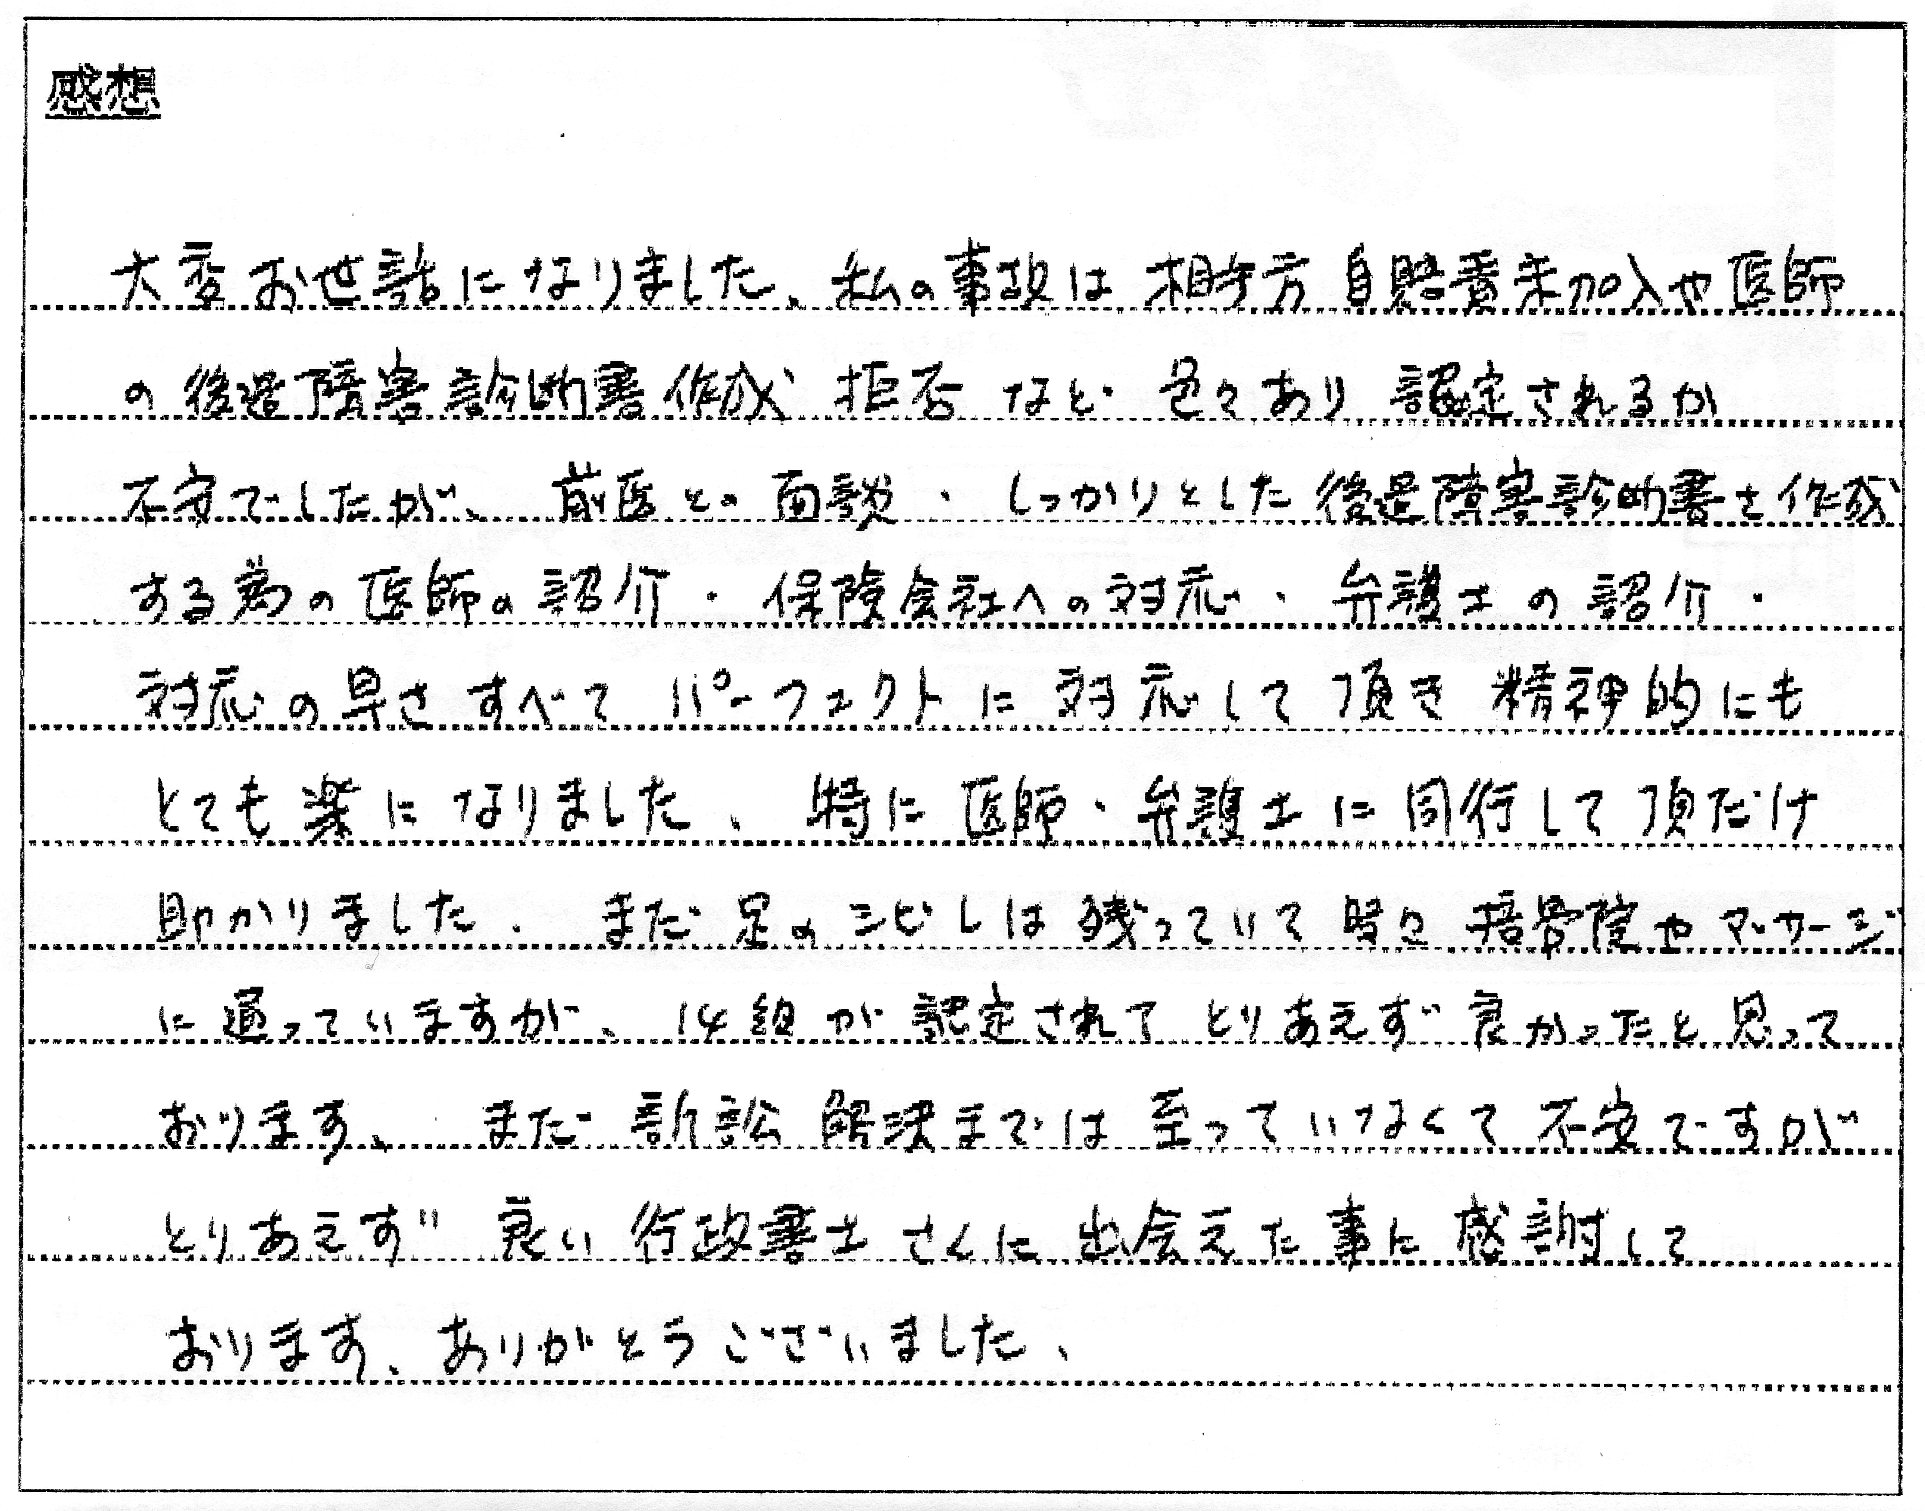 感想
大変お世話になりました、私の事故は相手方自賠責未加入や医師
の後遺障害診断書作成拒否など色々あり認定されるか
不安でしたが、前医との面談・しっかりとした後遺障害診断書を作成
する為の医師の紹介・保険会社への対応・弁護士の紹介・
対応の早さすべてパーフェクトに対応して頂き精神的にも
とても楽になりました、特に医師・弁護士に同行して頂だけ
助かりました、まだ足のシビレは残っていて時々接骨院やマッサージ
に通っていますが、14級が認定されてとりあえず良かったと思って
おります、まだ訴訟解決までは至っていなくて不安ですが
とりあえず良い行政書士さんに出会えた事に感謝して
おります、ありがとうございました、